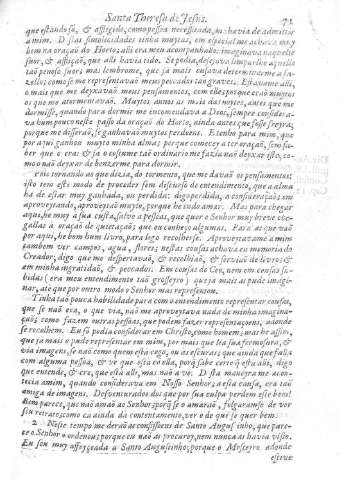 Santa Theresa de Jesus. 71
que estando só, & affligido, como pessoa necessitada, me havia de admittir
a mim. D estas simplicidades tinha muytas, em especial me achava muy
bem na oração do Horto: alli era meu acompanhallo: imaginava naquelle
suor, & afflição, que alli havia tido. Se podia, desejava limparlhe aquelle
tão penoso suor; mas lembrome, que já mais ousava determinarme a fa-
zello; como se me representavão meus peccados tão graves. Estavame alli,
o mais que me deyxavão meus pensamentos, com elle; porque erão muytos
os que me atormentavão. Muytos annos as mais das noytes, antes que me
dormisse, quando para dormir me encommendava a Deos, sempre considera-
va hum pouco neste passo da oração do Horto, ainda antes que fosse freyra;
porque me disserão, se ganhavão muytos perdoens. E tenho para mim, que
por aqui ganhou muyto minha alma; porque comecey a ter oração, sem sa-
ber que o era: & já o costume tão ordinario me fazia não deyxar isto, co-
mo o não deyxar de benzerme para dormir.
Pois tornando ao que dizia, do tormento, que me davão os pensamentos;
isto tem este modo de proceder sem discurso do entendimento, que a alma
ha de estar muy ganhada, ou perdida: digo perdida, a consideração; em
aproveytando, aproveytão muyto, porque he em amar. Mas para chegar
aqui, he muy a sua custa, salvo a pessoas, que quer o Senhor muy breve che-
gallas á oração de quietação; que eu conheço algumas. Para as que vão
por aqui, he bom hum livro, para logo recolherse. Aproveytavame a mim
tambem ver campos, agua, flores; nestas cousas achava eu memoria do
Creador, digo que me despertavão, & recolhião, & servião de livro: &
em minha ingratidão, & peccados. Em cousas do Ceo, nem em cousas su-
bidas (era meu entendimento tão grosseyro) que já mais as pude imagi-
nar, até que por outro modo o Senhor mas representou.
Tinha tão pouca habilidade para com o entendimento representar cousas,
que se não era, o que via, não me aproveytava nada de minha imagina-
ção; como fazem outras pessoas, que podem fazer representaçoens, adonde
se recolhem. Eu só podia considerar em Christo, como homem; mas he assim,
que já mais o pude representar em mim, por mais que lia sua fermosura, &
via imagens, se não como quem está cego, ou ás escuras; que ainda que falla
com alguma pessoa, & vé que está com ella, porq̃ sabe certo q̃ está alli, digo
que entende, & cré, que está alli, mas não a vé. D esta maneyra me acon-
tecia amim, quando considerava em Nosso Senhor; a esta causa, era tão
amiga de imagens. Desventurados dos que por sua culpa perdem este bem!
Bem parece, que não amão ao Senhor; porq̃ se o amarão, folgarão se de ver
seu retrato; como cá ainda dá contentamento, ver o de que já quer bem.
2 Neste tempo me derão as confissoens de Santo Augustinho, que parece
o Senhor o ordenou; porque eu não as procurey, nem nunca as havia visto.
Eu sou muy affeyçoada a Santo Augustinho, porque o Mosteyro adonde
estive